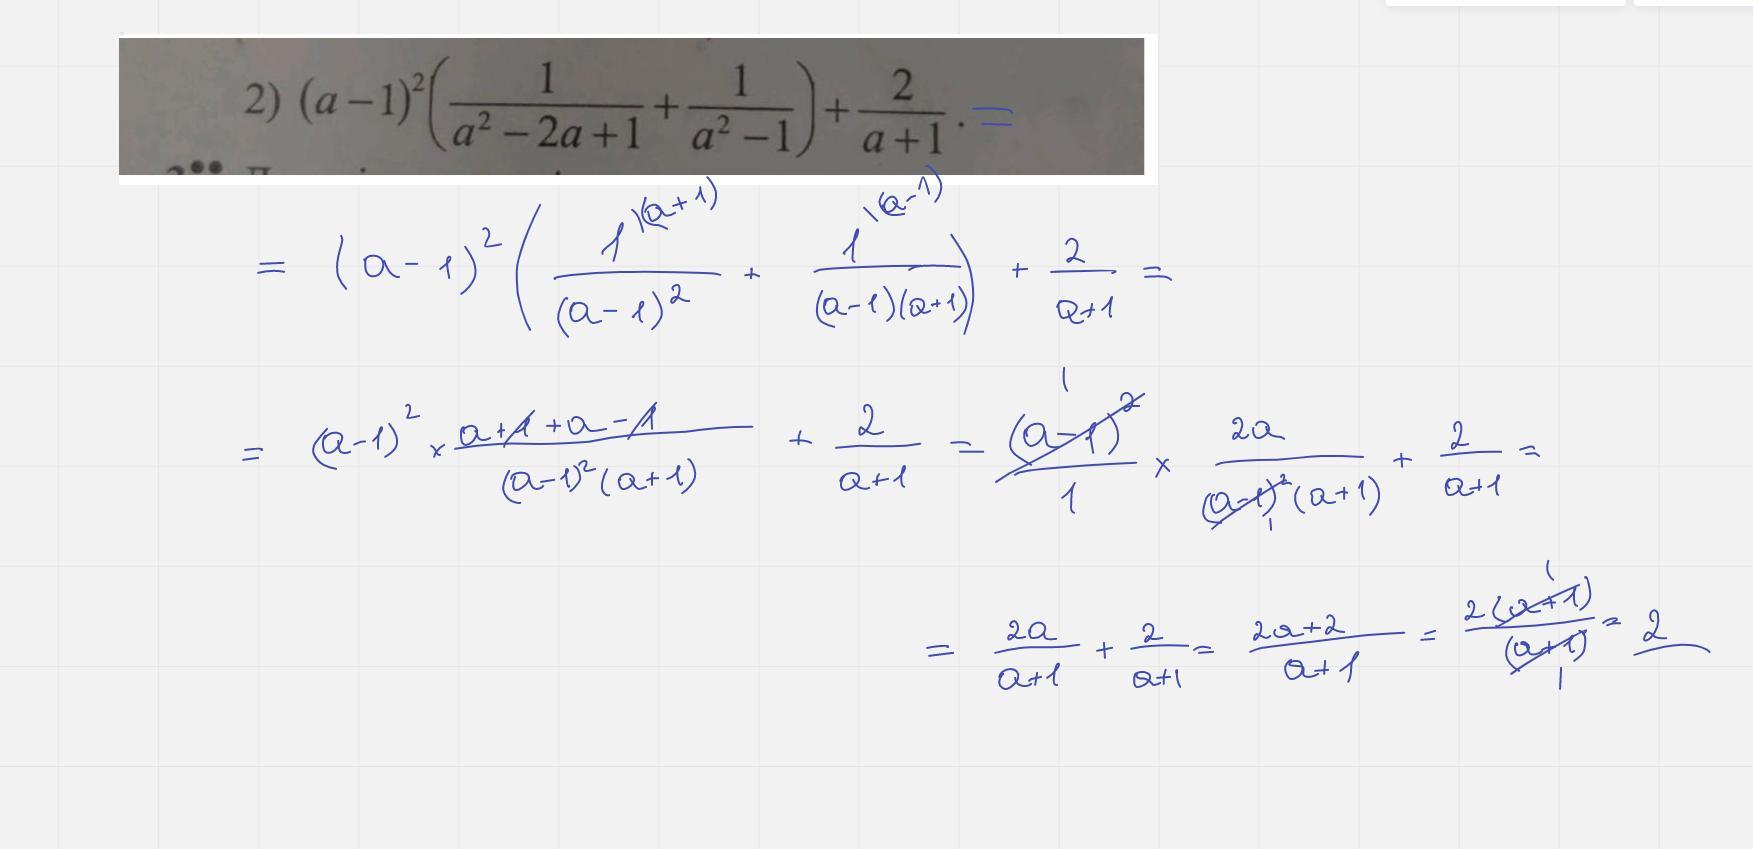 2) (a−1)²(1/(a²−2a+1) + 1/(a²−1)) + 2/(a+1). =
= (a−1)² (1\(a+1)/(a−1)² + 1\(a−1)/((a−1)(a+1))) + 2/(a+1) =
= (a−1)² × (a+1+a−1)/((a−1)²(a+1)) + 2/(a+1) = (a−1)²/1 × 2a/((a−1)²(a+1)) + 2/(a+1) =
= 2a/(a+1) + 2/(a+1) = (2a+2)/(a+1) = 2(a+1)/(a+1) = 2